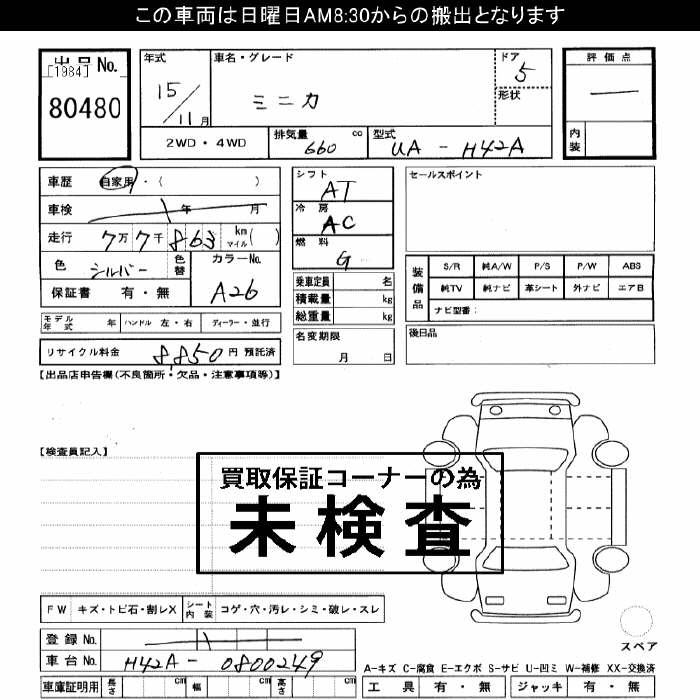 この車両は日曜日AM8:30からの搬出となります
出品 No.
[1984]
80480
年式
15/11月
車名・グレード
ミニカ
ドア
5
形状
2WD・4WD
排気量
660 cc
型式
UA - H42A
評価点
―
内装
車歴 自家用・( )
車検 年 月
走行 7万7千863 km マイル( )
色 シルバー 色替
カラーNo.
A26
保証書 有・無
モデル年式 年 ハンドル 左・右 ディーラー・並行
リサイクル料金 8,850円 預託済
シフト
AT
冷房
AC
燃料
G
乗車定員 名
積載量 kg
総重量 kg
名変期限
月 日
セールスポイント
装備品
S/R 純A/W P/S P/W ABS
純TV 純ナビ 革シート 外ナビ エアB
ナビ型番:
後日品
【出品店申告欄(不良箇所・欠品・注意事項等)】
【検査員記入】
買取保証コーナーの為
未検査
FW キズ・トビ石・割レX シート内装 コゲ・穴・汚レ・シミ・破レ・スレ
登録 No.
車台 No. H42A - 0800249
車庫証明用 長さ cm 幅 cm 高さ cm
スペア
A-キズ C-腐食 E-エクボ S-サビ U-凹ミ W-補修 XX-交換済
工具 有・無 ジャッキ 有・無